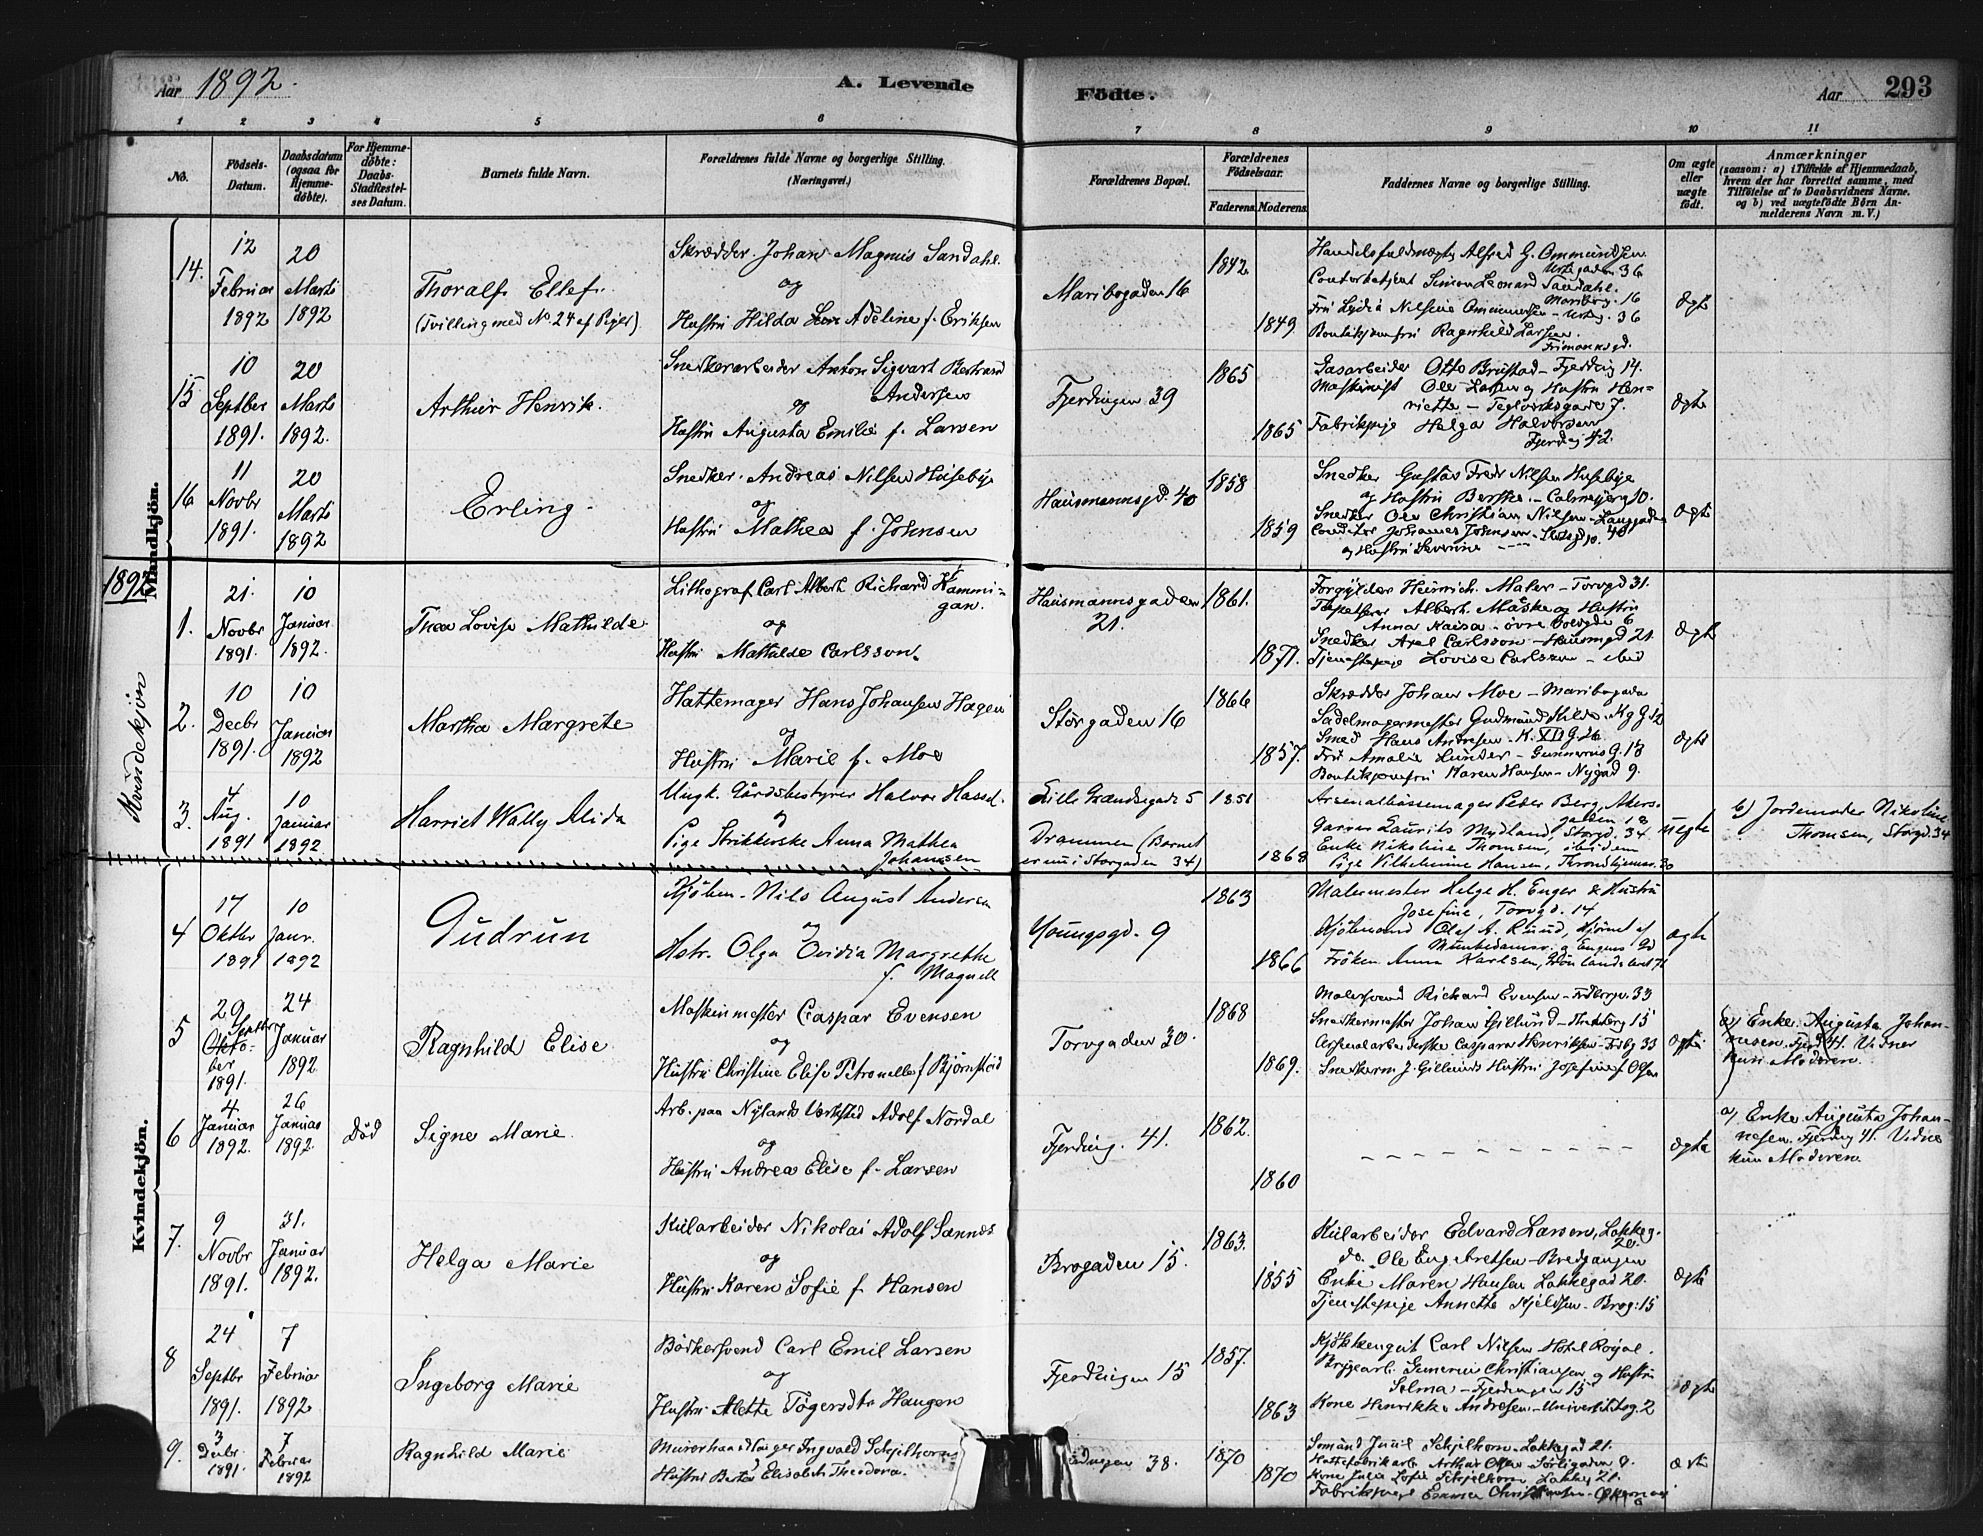 Aar 1892.
A. Levende
Födte.
Aar
293
1 2 3 4 5 6 7 8 9 10 11
No.
Födsels-Datum.
Daabsdatum (ogsaa for Hjemme-döbte).
For Hjemme-döbte: Daabs-Stadfæstel-ses Datum.
Barnets fulde Navn.
Forældrenes fulde Navne og borgerlige Stilling.
(Næringsvei.)
Forældrenes Bopæl.
Forældrenes Födselsaar.
Faderens. Moderens.
Faddernes Navne og borgerlige Stilling.
Om ægte eller uægte födt.
Anmærkninger
(saasom: a) i Tilfælde af Hjemmedaab,
hvem der har forrettet samme, med
Tilföielse af to Daabsvidners Navne.
og b) ved uægtefödte Börn An-
melderens Navn m. V.)
Mandkjön.
14. 12 Februar 1892
20 Marts 1892
Thoralf Ellef.
(Tvilling med No. 24 af Piger)
Skrædder Johan Magnus Sandahl.
og
Hustru Hilda Adeline f. Eriksen
Maribogaden 16
1842.
1849.
Handelsfuldmægtig Alfred G. Ommundsen
Urtegaden 36
Contorbetjent Simon Leonard Sandahl.
Maribog. 16
Fru Lydia Nilsine Ommundsen - Urteg. 36
Ragnhild Larsen.
Frimannsgd.
ægte
15 10 Septber 1891.
20 Marts 1892.
Arthur Henrik.
Snedkerarbeider Anton Sigvart Bertrand
Andersen
og
Hustru Augusta Emilie f. Larsen
Fjerdingen 39
1865
1865
Gasarbeider Otto Brustad - Fjerding 14.
Maskinist Ole Larsen og Hustru Hen-
riette - Teglverksgade 7.
Fabrikpige Helga Halvorsen
Fjerding 42.
ægte
16 11 Novbr 1891.
20 Marts 1892
Erling.
Snedker Andreas Nilsen Husebye
og
Hustru Mathea f. Johnsen
Hausmannsgd. 40
1858
1859
Snedker Gustav Fredr Nilsen Husebye
og Hustru Berthe - Calmeyerg 10.
Snedker Ole Christian Nilsen - Langgaden
Conditor Johannes Johnsen - 40
og Hustru Severine - - -
ægte
1892
Kvindekjön
1. 21. Novbr 1891.
10 Januar 1892.
Thea Lovise Mathilde
Lithograf Carl Albert Richard Hammi-
gan.
og
Hustru Mathilde Carlsson.
Hausmannsgaden
21.
1861.
1871.
Forgylder Heinrich Maler - Torvgd 31.
Tapetserer Albert Måske og Hustru
Anna Kaisa - övre 6
Snedker Axel Carlsson - Hausmgd 21.
Tjenestepige Lovise Carlsson - ibid
ægte
2. 10 Decbr 1891.
10 Januar 1892
Martha Margrete
Hattemager Hans Johansen Hagen
og
Hustru Marie f. Moe
Storgaden 16
1866
1857.
Skrædder Johan Moe - Maribogade
Sadelmagermester Gudmund 12
Smed Hans Andresen - K. XII G. 26
Fru Amalie Lunder - Gunnerus G. 13
Karen Hansen - Nygad 9.
ægte
3. 4 Aug. 1891
10 Januar 1892.
Harriet Wally Alida
Ungk. Gårdsbestyrer Halvor Hassel.
og
Pige Strikkerske Anna Mathea
Johansen
Lille Grændsegade 5
Drammen (Barnet
er nu i Storgaden 34)
1851
1868
Arsenalbössemager Peder Berg, Akers-
gaden 18
Garver Laurits Mydland, Storgd. 34
Enke Nikoline Thomsen, ibidem
Pige Vilhelmine Hansen, Throndhjemsv. 30
uegte
b) Jordemoder Nikoline
Thomsen, Storgd. 34
Kvindekjön.
4 17 Oktbr 1891
10 Janr. 1892
Gudrun
Kjöbm. Nils August Andersen
og
Hstr. Olga Ovidia Margrethe
f. Magnell
Youngsgd. 9
1863
1866
Malermester Helge H. Enger & Hustru
Josefine, Torvgd. 14
Kjöbmand Olaf A. Ruud, Hjörnet af
Munkedamsv. og Engens Gd
Fröken Anna Karlsen, Grönlandsleret 71
ægte
5 29 Septbr Okto-ber 1891.
24 Januar 1892
Ragnhild Elise
Maskinmester Caspar Evensen
og
Hustru Christine Elise Petronelle f. Björnstad
Torvgaden 30.
1868
1869.
Malersvend Richard Evensen - 33
Snedkermester Johan Gillund - 15
Henriksen - 33
Snedkerm J. Gillunds Hustru Josefine f Olsen
ægte
a) Enke Augusta Johan-
nesen. Fjerd 41. Vidner
kun Moderen.
6 4. Januar 1892.
26 Januar 1892.
Död
Signe Marie.
Arb. paa Nylands Verksted Adolf Nordal
og
Hustru Andrea Elise f. Larsen
Fjerding. 41.
1862.
1860
- - - - - - - - - -
ægte
a) Enke Augusta Johan-
nesen. Fjerding 41. Vidne
kun Moderen.
7. 9 Novbr 1891.
31. Januar 1892.
Helga Marie
Kularbeider Nikolai Adolf Sannes
og
Hustru Karen Sofie f. Hansen
Brogaden 15.
1863.
1855
Kularbeider Edvard Larsen, Lakkeg.
20.
do. Ole Engebretsen - Bredgangen
Enke Maren Hansen Lakkegad 20.
Tjenestepige Annette Kjeldsen - Brog. 15
ægte
8 24 Septbr 1891.
7 Februar 1892
Ingeborg Marie
Bödkersvend Carl Emil Larsen
og
Hustru Alette Tögersdtr Haugen
Fjerdingen 15
1857.
1863
Carl Nilsen Hotel Royal.
Bryggearb. Christiansen og Hustru
Selma - Fjerdingen 15
Kone Henrikke Andresen - Universitetsg. 2
ægte
9. 3 Decbr. 1891.
7 Februar 1892
Ragnhild Marie
Murerhaandlanger Ingvald Schjelhorn
Hustru Berta Elisabeth Theodora.
38.
1870
1870
Sömand Juul Schjelhorn - Lakkegad 21.
Hattefabrikarb Arthur Olsen - Sörligaden 8.
Kone Julie Sofie Schjelhorn Lakkeg 21.
Fabrikspige Emma
ægte